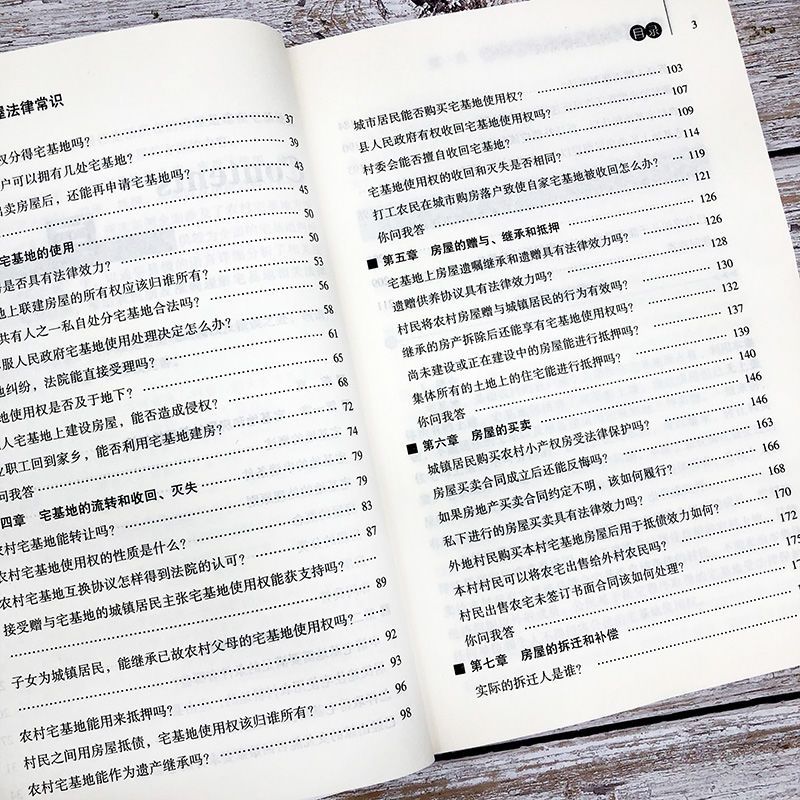 目录 3
屋法律常识
权分得宅基地吗? 37
户可以拥有几处宅基地? 39
出卖房屋后，还能再申请宅基地吗? 43
45
宅基地的使用 50
是否具有法律效力? 50
地上联建房屋的所有权应该归谁所有? 53
共有人之一私自处分宅基地合法吗? 56
服人民政府宅基地使用处理决定怎么办? 58
地纠纷，法院能直接受理吗? 61
地使用权是否及于地下? 65
人宅基地上建设房屋，能否造成侵权? 68
业职工回到家乡，能否利用宅基地建房? 72
问我答 74
四章 宅基地的流转和收回、灭失 79
农村宅基地能转让吗? 79
农村宅基地使用权的性质是什么? 83
农村宅基地互换协议怎样得到法院的认可? 87
接受赠与宅基地的城镇居民主张宅基地使用权能获支持吗?
89
子女为城镇居民，能继承已故农村父母的宅基地使用权吗?
92
农村宅基地能用来抵押吗? 93
村民之间用房屋抵债，宅基地使用权该归谁所有? 96
农村宅基地能作为遗产继承吗? 98
城市居民能否购买宅基地使用权? 103
县人民政府有权收回宅基地使用权吗? 107
村委会能否擅自收回宅基地? 109
宅基地使用权的收回和灭失是否相同? 114
打工农民在城市购房落户致使自家宅基地被收回怎么办? 119
你问我答 121
■ 第五章 房屋的赠与、继承和抵押 126
宅基地上房屋遗嘱继承和遗赠具有法律效力吗? 126
遗赠供养协议具有法律效力吗? 128
村民将农村房屋赠与城镇居民的行为有效吗? 130
继承的房产拆除后还能享有宅基地使用权吗? 132
尚未建设或正在建设中的房屋能进行抵押吗? 137
集体所有的土地上的住宅能进行抵押吗? 139
你问我答 140
■ 第六章 房屋的买卖 146
城镇居民购买农村小产权房受法律保护吗? 146
房屋买卖合同成立后还能反悔吗? 163
如果房地产买卖合同约定不明，该如何履行? 166
私下进行的房屋买卖具有法律效力吗? 168
外地村民购买本村宅基地房屋后用于抵债效力如何? 170
本村村民可以将农宅出售给外村农民吗? 172
村民出售农宅未签订书面合同该如何处理? 175
你问我答
■ 第七章 房屋的拆迁和补偿
实际的拆迁人是谁?